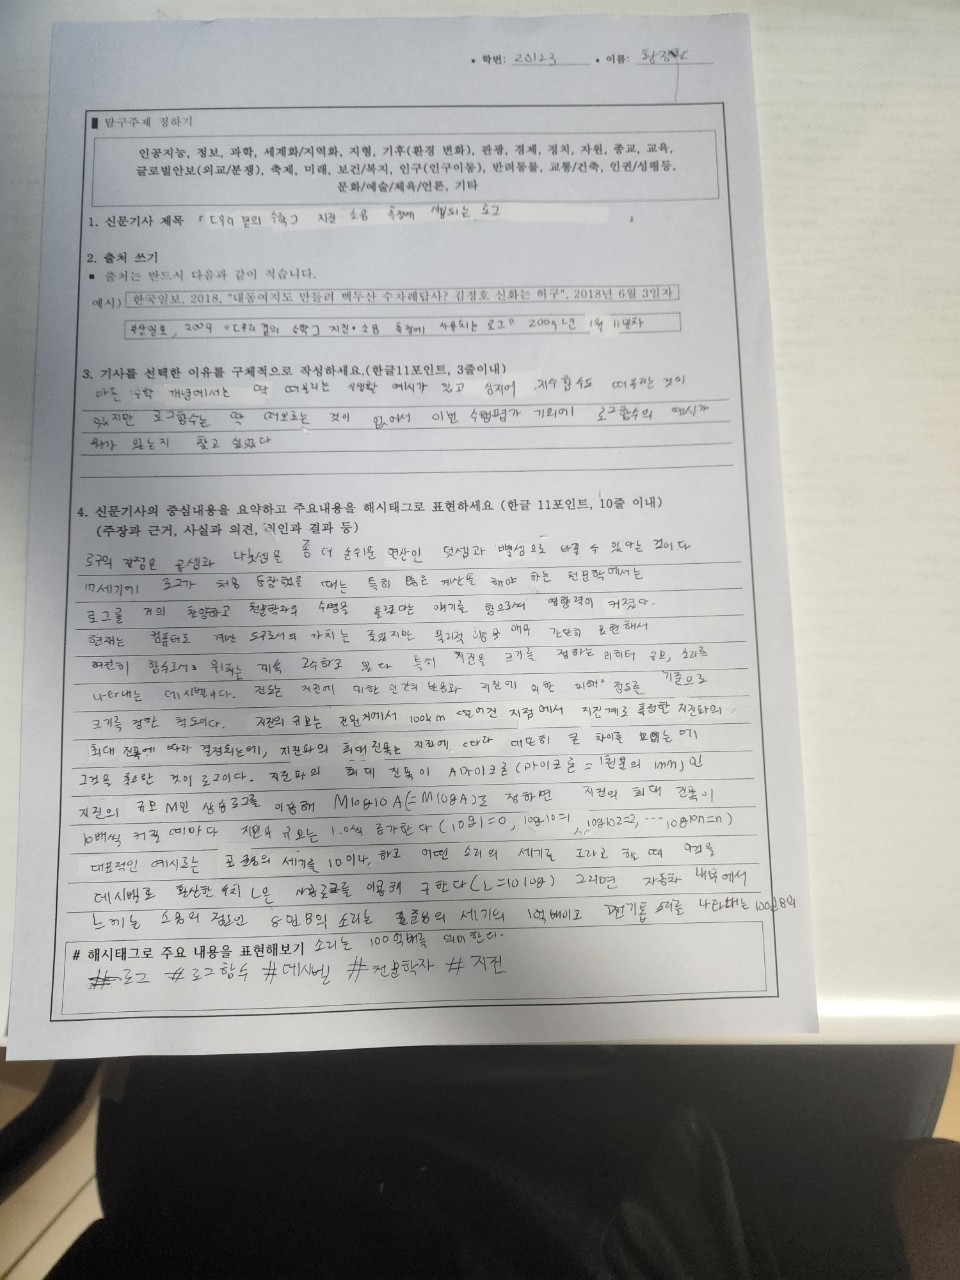 • 학번: 20123 • 이름:
■ 탐구주제 정하기
인공지능, 정보, 과학, 세계화/지역화, 지형, 기후(환경 변화), 관광, 경제, 정치, 자원, 종교, 교육,
글로벌안보(외교/분쟁), 축제, 미래, 보건/복지, 인구(인구이동), 반려동물, 교통/건축, 인권/성평등,
문화/예술/체육/언론, 기타
1. 신문기사 제목 「우리 곁의 수학」 지진 소음 측정에 로그
2. 출처 쓰기
▪ 출처는 반드시 다음과 같이 적습니다.
예시) 한국일보, 2018, "대동여지도 만들려 백두산 수차례답사? 김정호 신화는 허구", 2018년 6월 3일자
부산일보, 2009 "「우리 곁의 수학」 지진·소음 측정에 사용되는 로그" 2009년 11일자
3. 기사를 선택한 이유를 구체적으로 작성하세요.(한글11포인트, 3줄이내)
다른 수학 개념에서는 딱 떠올리는 실생활 예시가 있고 심지어 지수함수도 떠올리는 것이
있지만 로그함수는 딱 떠오르는 것이 없어서 이번 수행평가 기회에 로그함수의 예시가
뭐가 있는지 찾고 싶었다
4. 신문기사의 중심내용을 요약하고 주요내용을 해시태그로 표현하세요 (한글 11포인트, 10줄 이내)
(주장과 근거, 사실과 의견, 원인과 결과 등)
로그의 장점은 곱셈과 나눗셈을 좀 더 손쉬운 연산인 덧셈과 뺄셈으로 바꿀 수 있다는 것이다
17세기에 로그가 처음 등장했을 때는 특히 많은 계산을 해야 하는 천문학에서는
로그를 거의 찬양하고 천문학자의 수명을 늘렸다는 얘기를 함으로써 영향력이 커졌다.
현재는 컴퓨터로 계산 도구로서의 가치는 물리적 매우 간단히 표현해서
여전히 함수로서의 위치는 계속 고수하고 있다 특히 지진을 크기를 정하는 리히터 규모, 소리를
나타내는 데시벨이다. 진도는 지진에 의한 인간의 반응과 지진에 의한 피해 정도를 기준으로
크기를 정한 척도이다. 지진의 규모는 진원지에서 100km 떨어진 지점에서 지진계로 측정한 지진파의
최대 진폭에 따라 결정되는데, 지진파의 최대 진폭는 지진에 따라 대단히 큰 차이를 보이는데
그것을 축소한 것이 로그이다. 지진파의 최대 진폭이 A마이크론(마이크론 = 1천분의 1mm)인
지진의 규모 M인 상용로그를 이용해 M=log10A(=MlogA)로 정하면 지진의 최대 진폭이
10배씩 커질 때마다 지진의 규모는 1.0씩 증가한다 (log1=0, log10=1, log102=2, … log10n=n)
대표적인 예시로는 표준음의 세기를 10이나, 하고 어떤 소리의 세기를 P라고 할 때 이것을
데시벨로 환산한 수치 L은 상용로그를 이용해 구한다(L=10log) 그러면 자동차 내부에서
느끼는 소음의 정도인 8인B의 소리는 표준음의 세기의 1억배이고 전기톱 소리를 나타내는
소리는 100억배를 의미한다.
# 해시태그로 주요 내용을 표현해보기
#로그 #로그함수 #데시벨 #천문학자 #지진